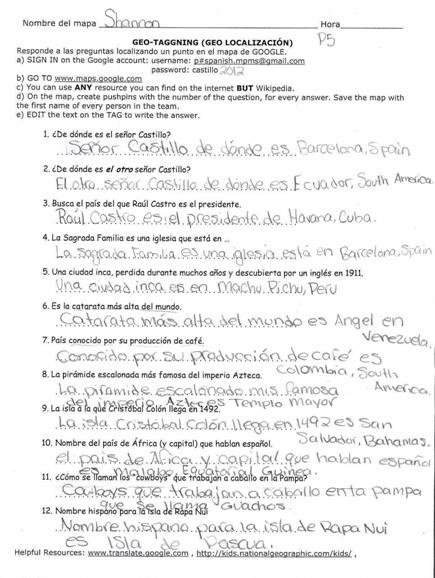 Nombre del mapa Shannon Hora
P5
GEO-TAGGNING (GEO LOCALIZACIÓN)
Responde a las preguntas localizando un punto en el mapa de GOOGLE.
a) SIGN IN on the Google account: username: p#spanish.mpms@gmail.com
password: castillo 2012
b) GO TO www.maps.google.com
c) You can use ANY resource you can find on the internet BUT Wikipedia.
d) On the map, create pushpins with the number of the question, for every answer. Save the map with
the first name of every person in the team.
e) EDIT the text on the TAG to write the answer.
1. ¿De dónde es el señor Castillo?
Señor Castillo de dónde es Barcelona, Spain
2. ¿De dónde es el otro señor Castillo?
El otro señor Castillo de donde es Ecuador, South America
3. Busca el país del que Raúl Castro es el presidente.
Raúl Castro es el presidente de Havana, Cuba.
4. La Sagrada Familia es una iglesia que está en ...
La Sagrada Familia es una iglesia está en Barcelona, Spain
5. Una ciudad inca, perdida durante muchos años y descubierta por un inglés en 1911.
Una ciudad inca es en Machu Pichu, Peru
6. Es la catarata más alta del mundo.
Catarata más alta del mundo es Angel en
Venezuela.
7. País conocido por su producción de café.
Conocido por su producción de café es
Colombia, South
America.
8. La pirámide escalonada más famosa del imperio Azteca.
La pirámide escalonado mis famosa
del imperio Aztec es Templo Mayor
9. La isla a la que Cristóbal Colón llega en 1492.
La isla Cristóbal Colón llega en 1492 es San
Salvador, Bahamas.
10. Nombre del país de África (y capital) que hablan español.
el país de África y capital que hablan español
es Malabo, Equatorial Guinea.
11. ¿Cómo se llaman los "cowboys" que trabajan a caballo en la Pampa?
Cowboys que trabajan a caballo en la pampa
que se llama Guachos.
12. Nombre hispano para la Isla de Rapa Nui
Nombre hispano para la isla de Rapa Nui
es Isla de Pascua.
Helpful Resources: www.translate.google.com , http://kids.nationalgeographic.com/kids/ ,